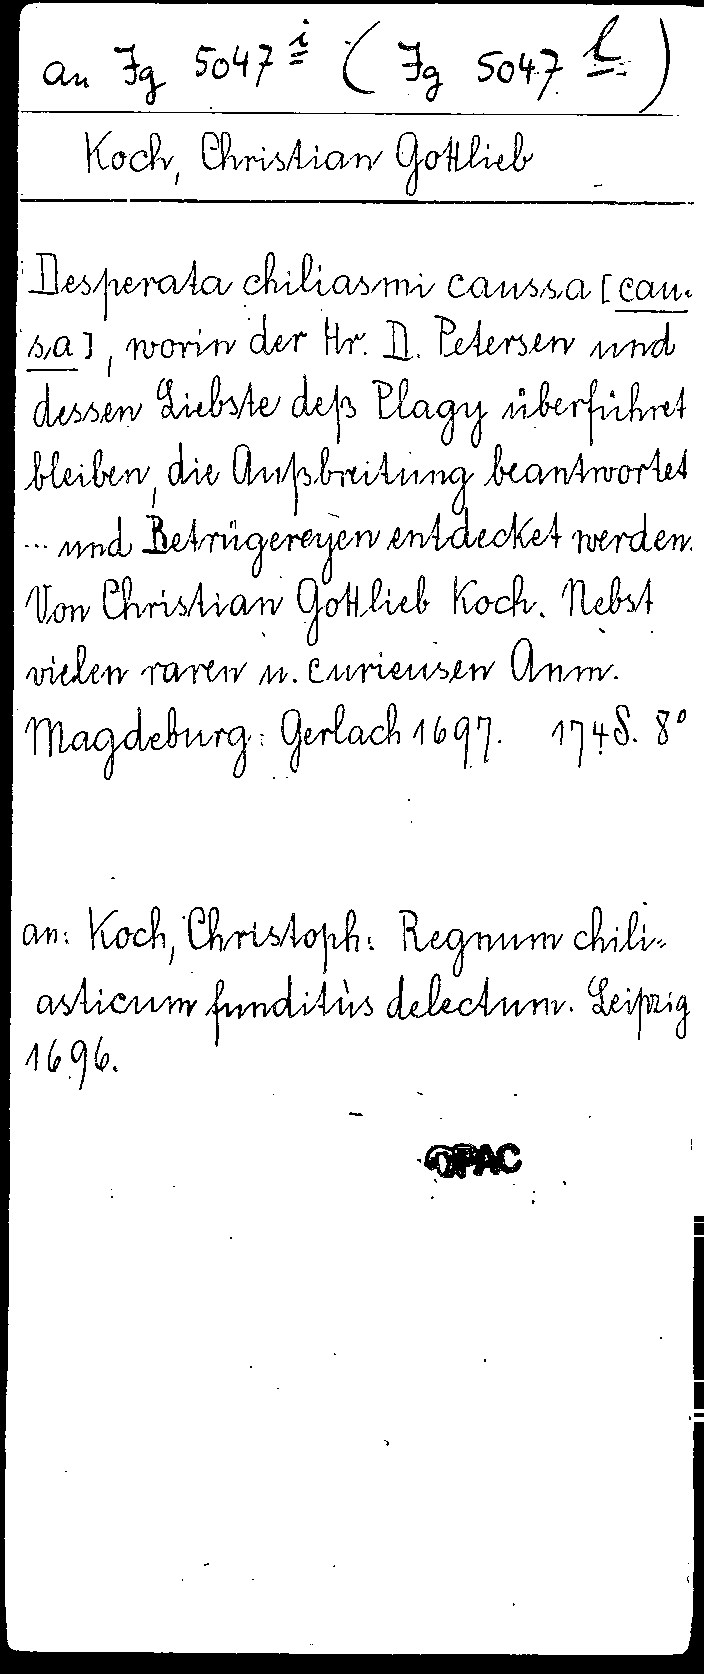 an Jg 5047 i ( Jg 5047 l )
Koch, Christian Gottlieb
Desperata chiliasmi caussa [cau-
sa], worin der Hr. D. Petersen und
dessen Liebste deß Plagy überführet
bleiben, die Außbreitung beantwortet
... und Betrügereyen entdecket werden.
Von Christian Gottlieb Koch. Nebst
vielen raren u. curieusen Anm.
Magdeburg: Gerlach 1697. 174 S. 8°
an: Koch, Christoph: Regnum chili-
asticum funditùs delectum. Leipzig
1696.
OPAC